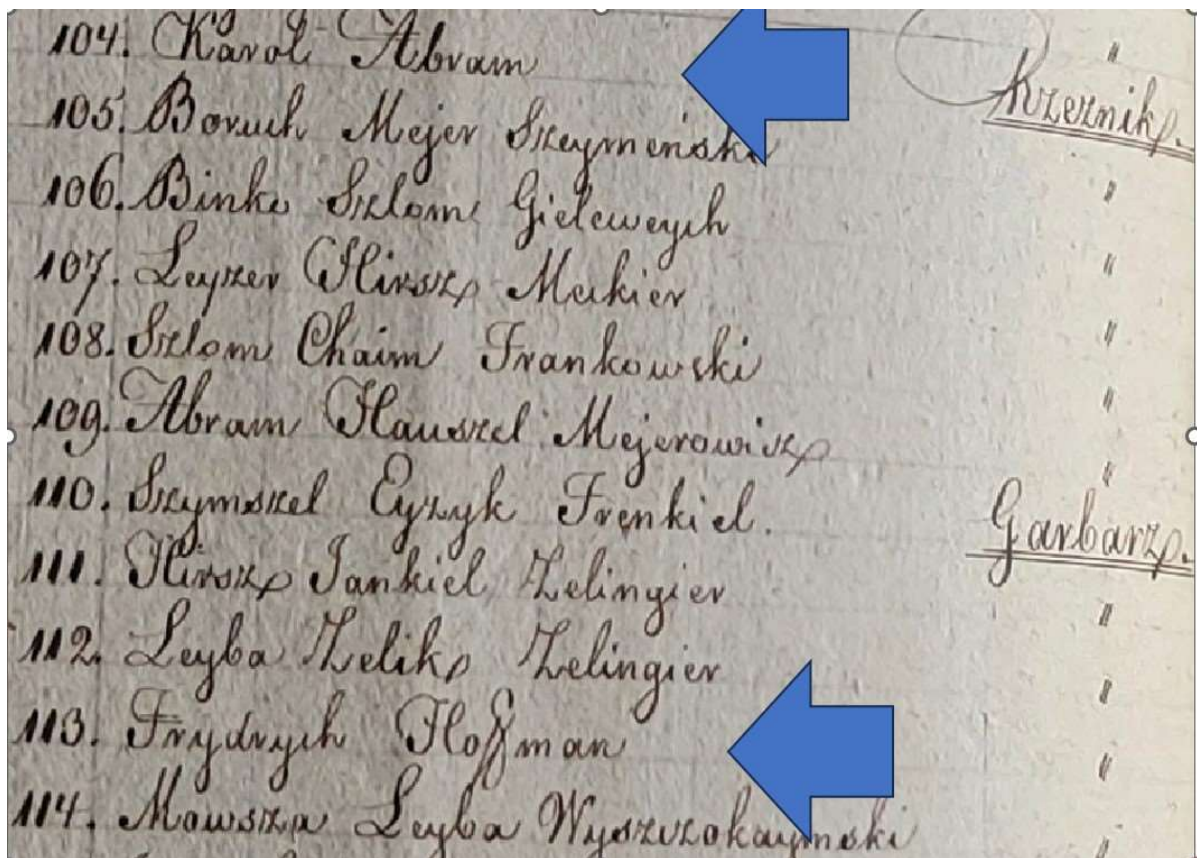 104. Karol Abram "
Krzeznik.
105. Boruch Mejer Szeymeński "
106. Binke Szlom Gieleweych "
107. Leyzer Hirsz Mekier "
108. Szlom Chaim Frankowski "
109. Abram Hauszel Mejerowisz "
110. Szymszel Eyzyk Frenkiel. Garbarz.
111. Hirsz Jankiel Zelingier "
112. Leyba Zelik Zelingier "
113. Frydrych Hoffman "
114. Mowsza Leyba "